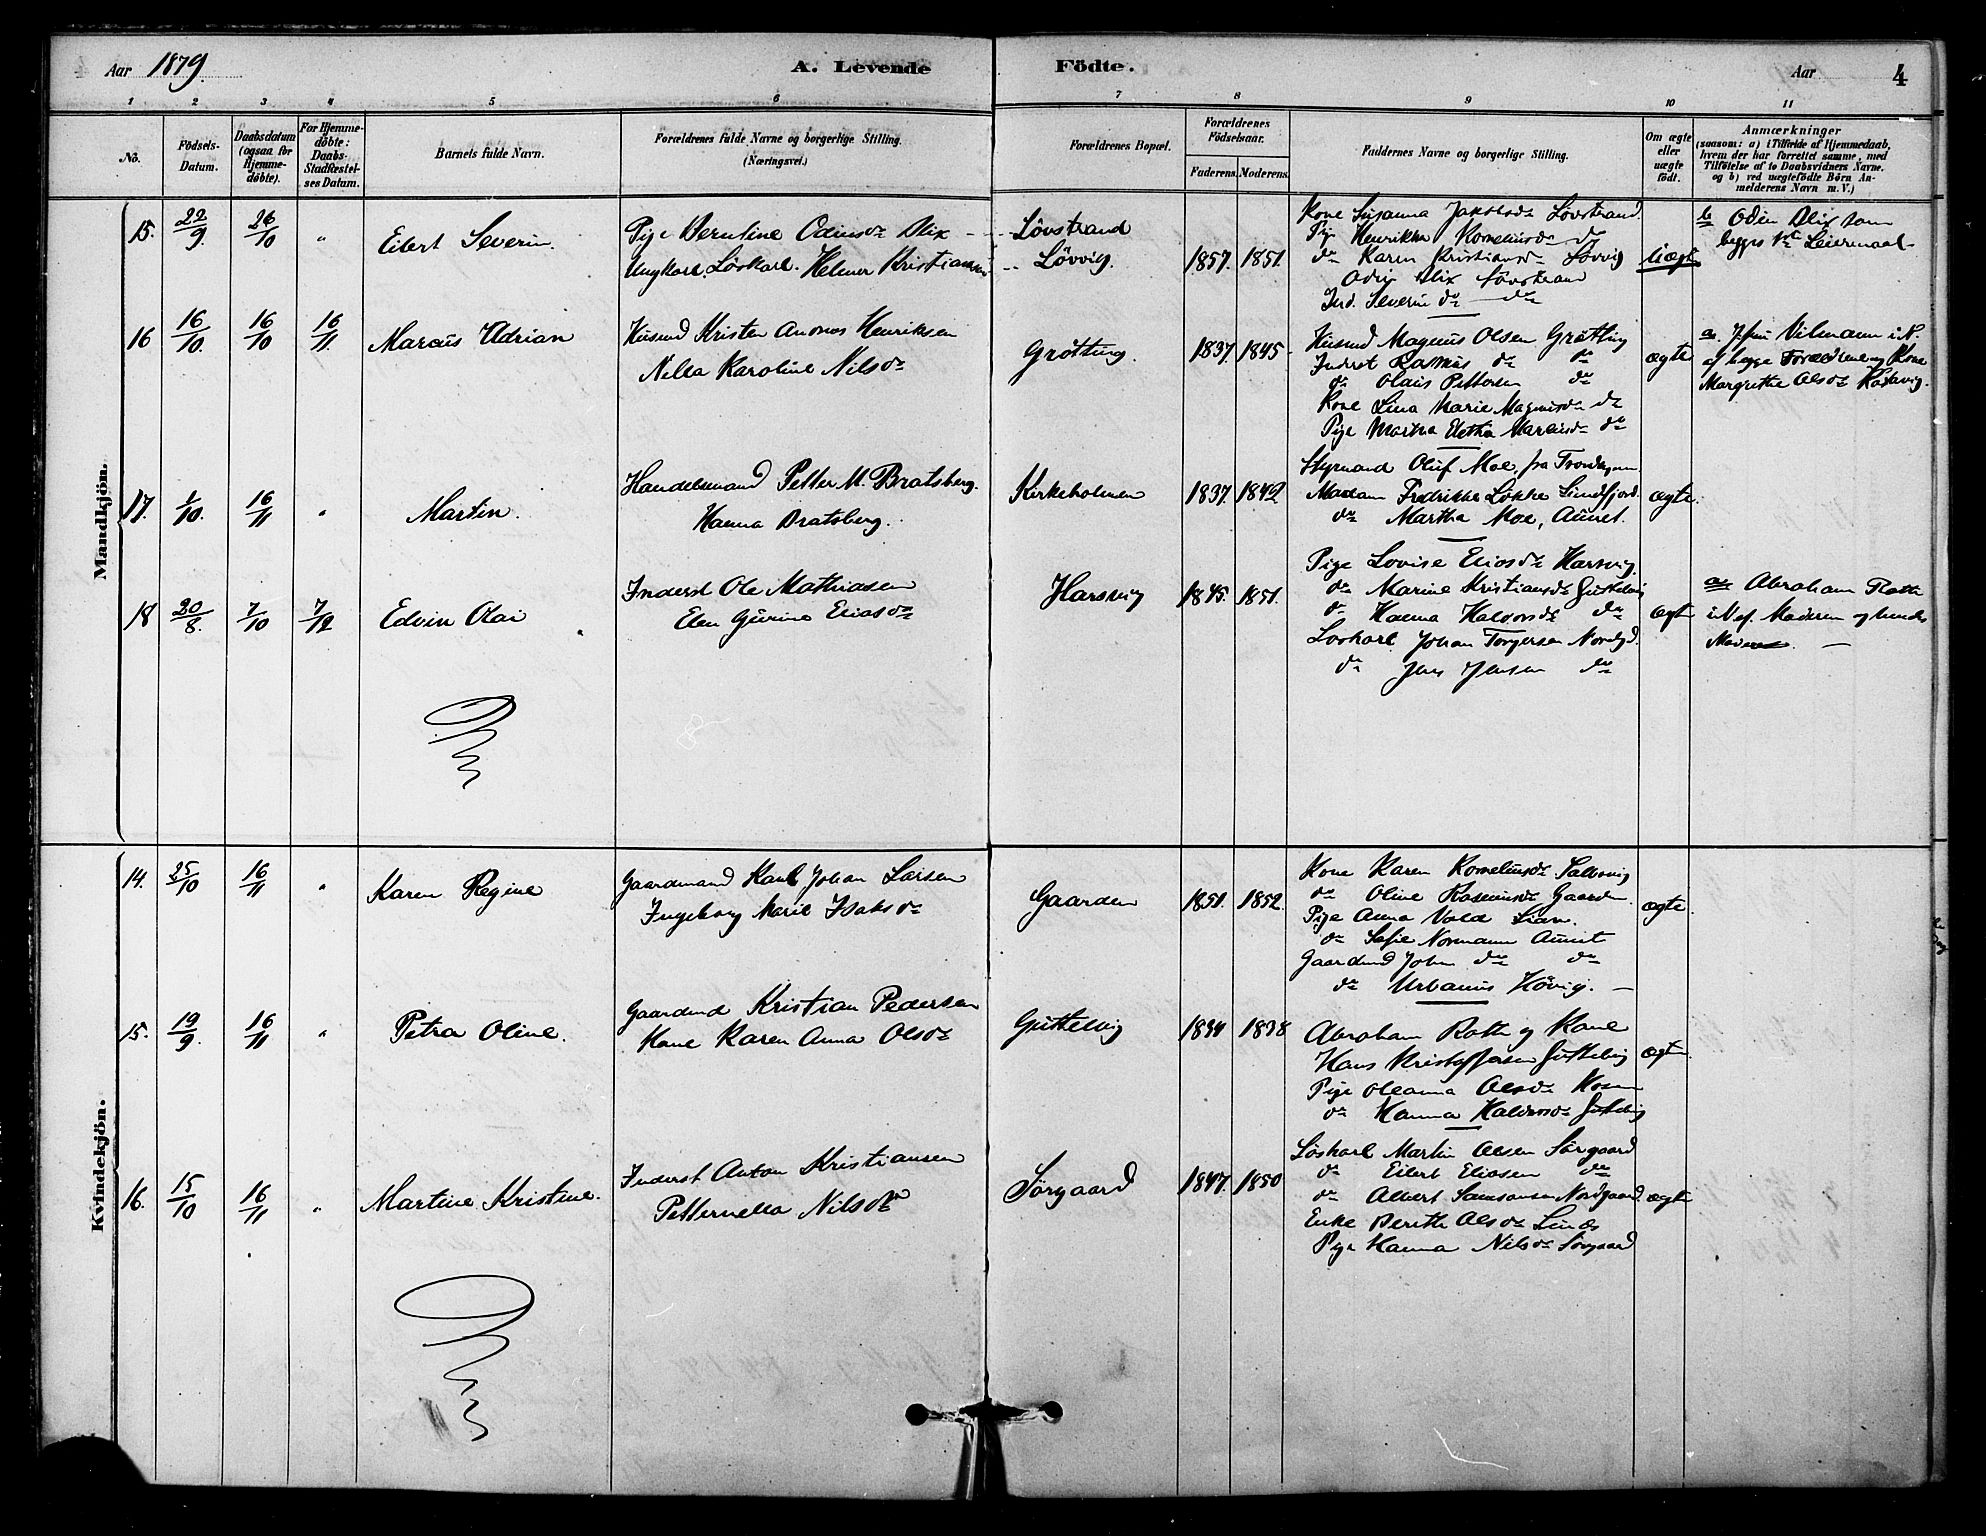 Aar 1879. A. Levende Födte. Aar 4
1 2 3 4 5 6 7 8 9 10 11
No.
Födsels-Datum.
Daabsdatum (ogsaa for Hjemme-döbte).
For Hjemme-döbte: Daabs-Stadfæstel-ses Datum.
Barnets fulde Navn.
Forældrenes fulde Navne og borgerlige Stilling.
(Næringsvei.)
Forældrenes Bopæl.
Forældrenes Födselsaar.
Faderens. Moderens.
Faddernes Navne og borgerlige Stilling.
Om ægte eller uægte födt.
Anmærkninger
(saasom: a) i Tilfælde af Hjemmedaab,
hvem der har forrettet samme, med
Tilföielse af to Daabsvidners Navne.
og b) ved uægtefödte Börn An-
melderens Navn m. V.)
Mandkjön.
15. 22/9 26/10 " Eilert Severin.
Pige Berntine Odinsdr Blix
Ungkarl Löskarl. Helmer Kristiansen
Lövstrand
Lövvig.
1857. 1851.
Kone Susanna Jakobsdr Lövstrand
Pige Henrikke Kornelinsdr do
do Karen Kristiansdr Lövvig
Odin Blix Lövstrand
Ind. Severin do do
Uægte
b Odin Blix som
begges 1ste Leiermaal
16 16/10. 16/10 16/11. Marcus Adrian
Husmd Kristen Andreas Henriksen
Nilla Karoline Nilsdr
Grötting.
1837. 1845
Husmd Magnus Olsen Grötting
Inderst Rasmus do do
do Olaus Pettersen do
Kone Lina Marie Magnusdr do
Pige Martha Marcusdr do
ægte
af begge Forældrene og Kone
Margrethe Olsdr
17. 1/10. 16/11 " Martin.
Handelsmand Petter M. Bratsberg.
Hanna Bratsberg.
Kirkeholmen
1837. 1842
Styrmand Oluf Moe, fra Trondhjem
Madam Fredrikke Lökke
do Martha Moe, Aunet.
ægte
18 20/8. 7/10 7/12 Edvin Olai
Inderst Ole Mathiasen
Elen Gurine Eliasdr
Harsvig
1845. 1851.
Pige Lovise Eliasdr Harsvig.
do Marine Kristiansdr Guttelvig
do Hanna Haldorsdr do
Löskarl Johan Torgersen Nordgd.
do Jens Jensen do
ægte
a Abraham Roth
i N ef. Moderen og hendes
Moder
Kvindekjön.
14. 25/10 16/11 " Karen Regine
Gaardmand Karl Johan Larsen
Ingeborg Marie Isaksdr
Gaarden
1851. 1852.
Kone Karen Kornelinsdr
do Oline Rasmusdr Gaarden
Pige Anna Vold Lian.
do Sofie Normann Aunet
Gaardmd John do do
do Urbanus Hövig.
ægte
15. 19/9. 16/11 " Petra Oline.
Gaardmd Kristian Pedersen
Kone Karen Anna Olsdr
Guttelvig
1834 1838
Abraham Roth og Kone
Hans Kristoffersen Guttelvig
Pige Oleanna Olsdr
do Hanna Haldorsdr Guttelvig
ægte
16. 15/10 16/11 " Martine Kristine.
Inderst Anton Kristiansen
Petternella Nilsdr
Sörgaard
1847. 1850
Löskarl Martin Olsen Sörgaard
do Eilert Eliasen do
do Albert Samsonsen Nordgaard.
Enke Berith Olsdr
Pige Hanna Nilsdr Sörgaard
ægte